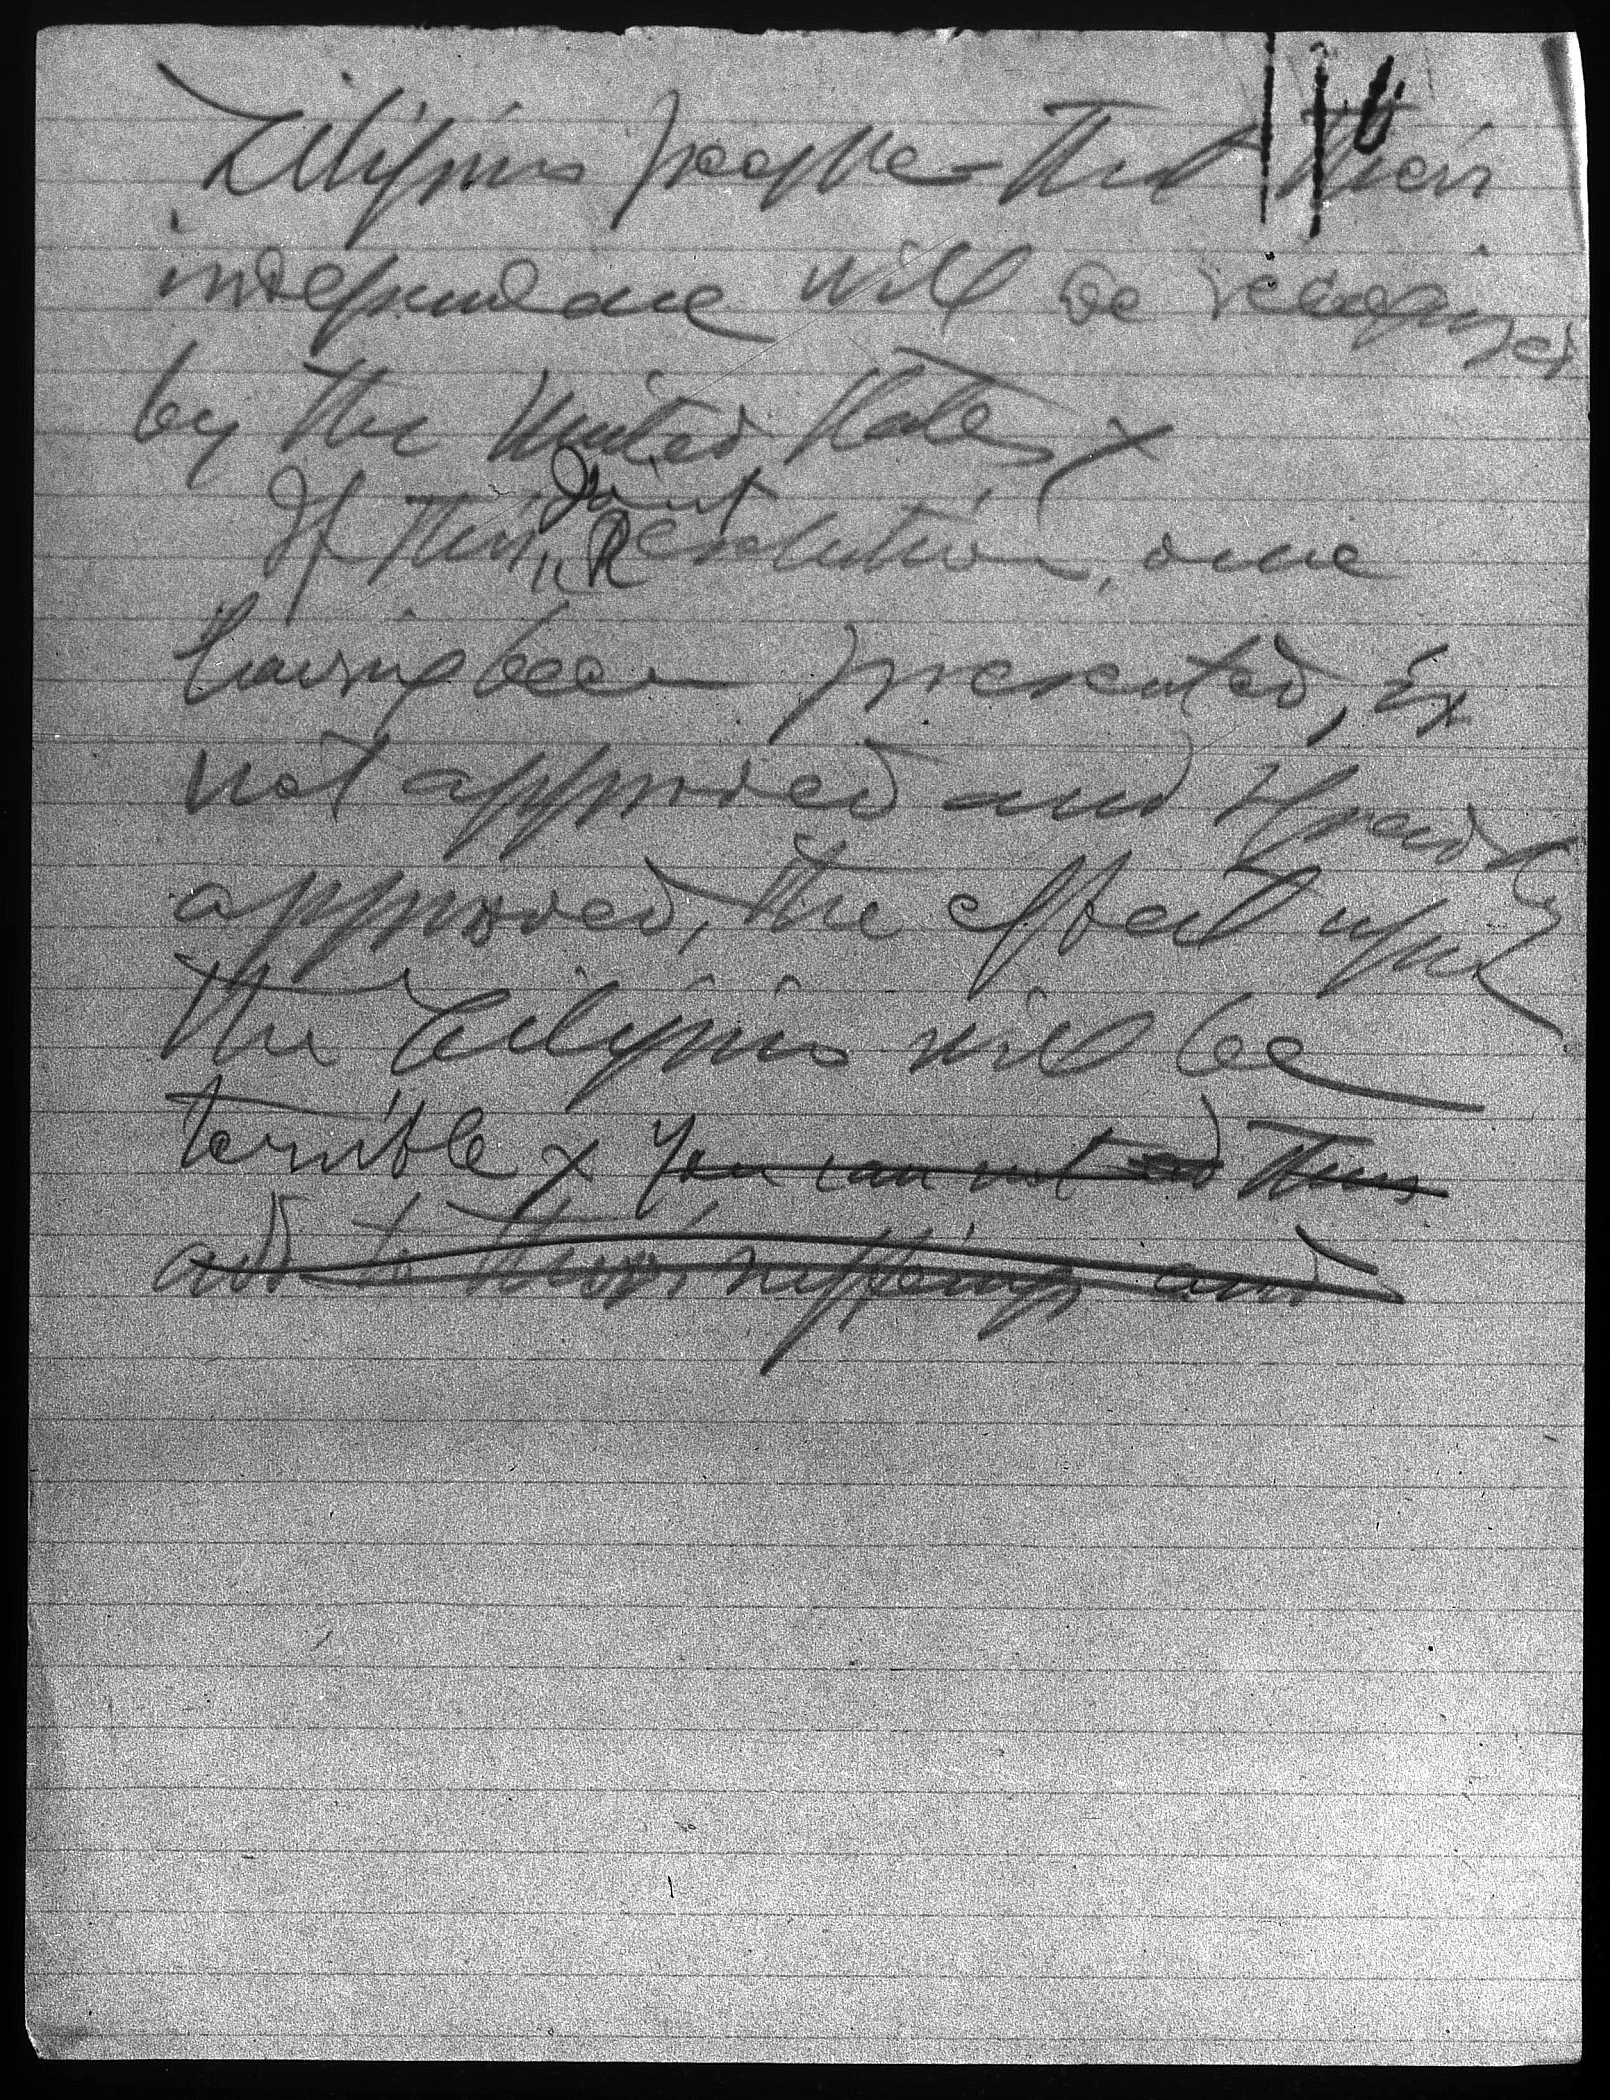 Filipino people - that their
independence will be recognized
by the United States x
Joint
If this Resolution, once
having been presented, is
not approved and speedily
approved, the effect upon
the Filipinos will be
terrible x You can not add thus
add to their sufferings and